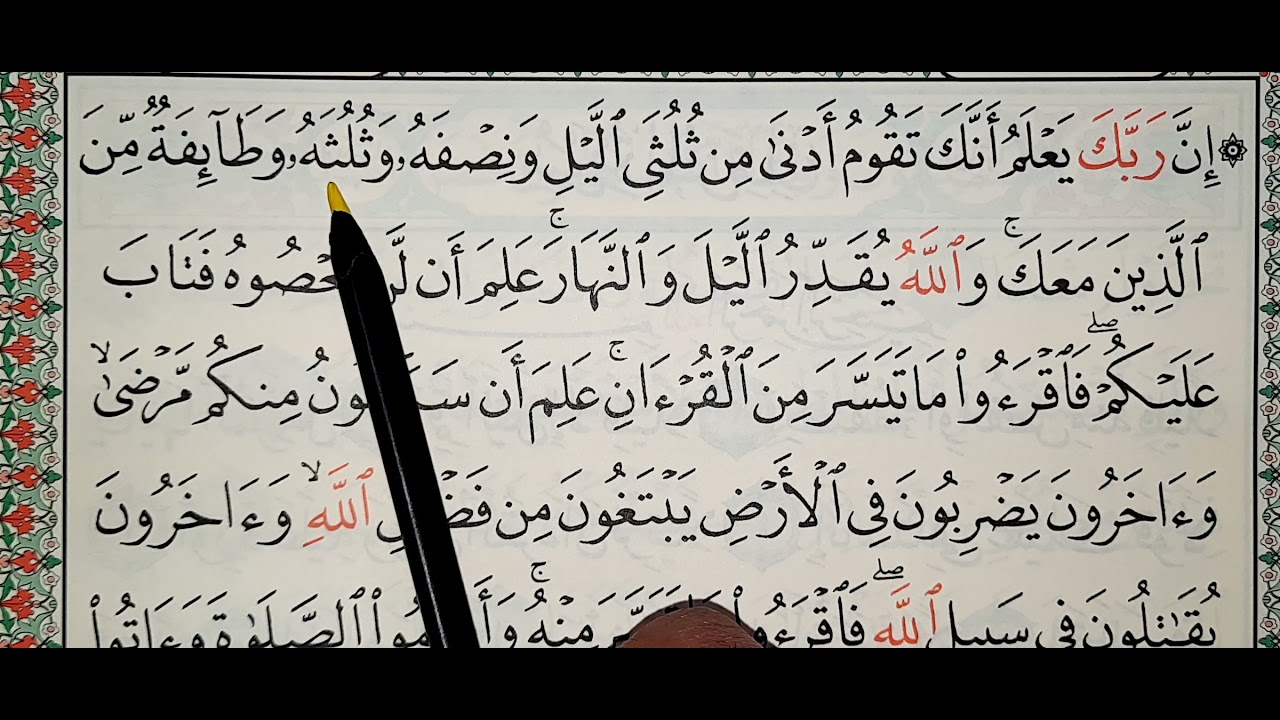 ۞ إِنَّ رَبَّكَ يَعْلَمُ أَنَّكَ تَقُومُ أَدْنَىٰ مِن ثُلُثَيِ ٱلَّيْلِ وَنِصْفَهُۥ وَثُلُثَهُۥ وَطَآئِفَةٌ مِّنَ
ٱلَّذِينَ مَعَكَ ۚ وَٱللَّهُ يُقَدِّرُ ٱلَّيْلَ وَٱلنَّهَارَ ۚ عَلِمَ أَن فَتَابَ
عَلَيْكُمْ ۖ فَٱقْرَءُوا۟ مَا تَيَسَّرَ مِنَ ٱلْقُرْءَانِ ۚ عَلِمَ أَن مِنكُم مَّرْضَىٰ ۙ
وَءَاخَرُونَ يَضْرِبُونَ فِى ٱلْأَرْضِ يَبْتَغُونَ مِن ٱللَّهِ ۙ وَءَاخَرُونَ
يُقَـٰتِلُونَ فِى سَبِيلِ ٱللَّهِ ۖ فَٱقْرَءُوا۟ مِنْهُ ۚ ٱلصَّلَوٰةَ وَءَاتُوا۟